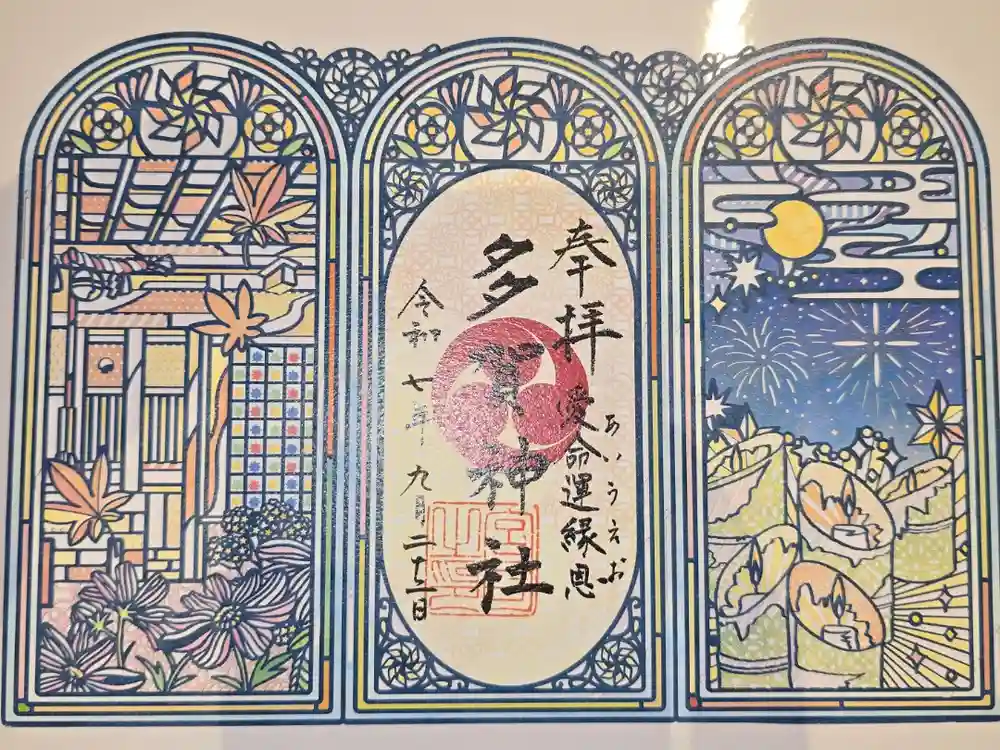 奉拝
愛命運縁恩
あいうえお
多賀神社
令和七年九月二十二日